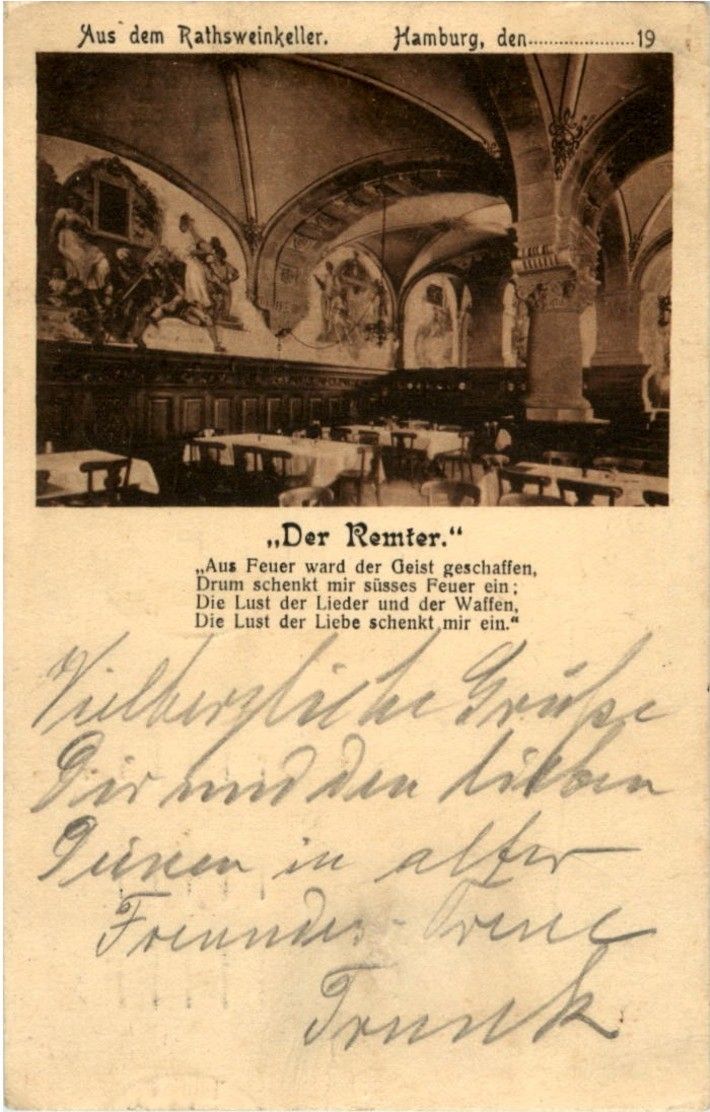 Aus dem Rathsweinkeller. Hamburg, den....................19
„Der Remter.“
„Aus Feuer ward der Geist geschaffen,
Drum schenkt mir süsses Feuer ein;
Die Lust der Lieder und der Waffen,
Die Lust der Liebe schenkt mir ein.“
Grüße
Dir und den lieben
in alter
Freundes-Treue